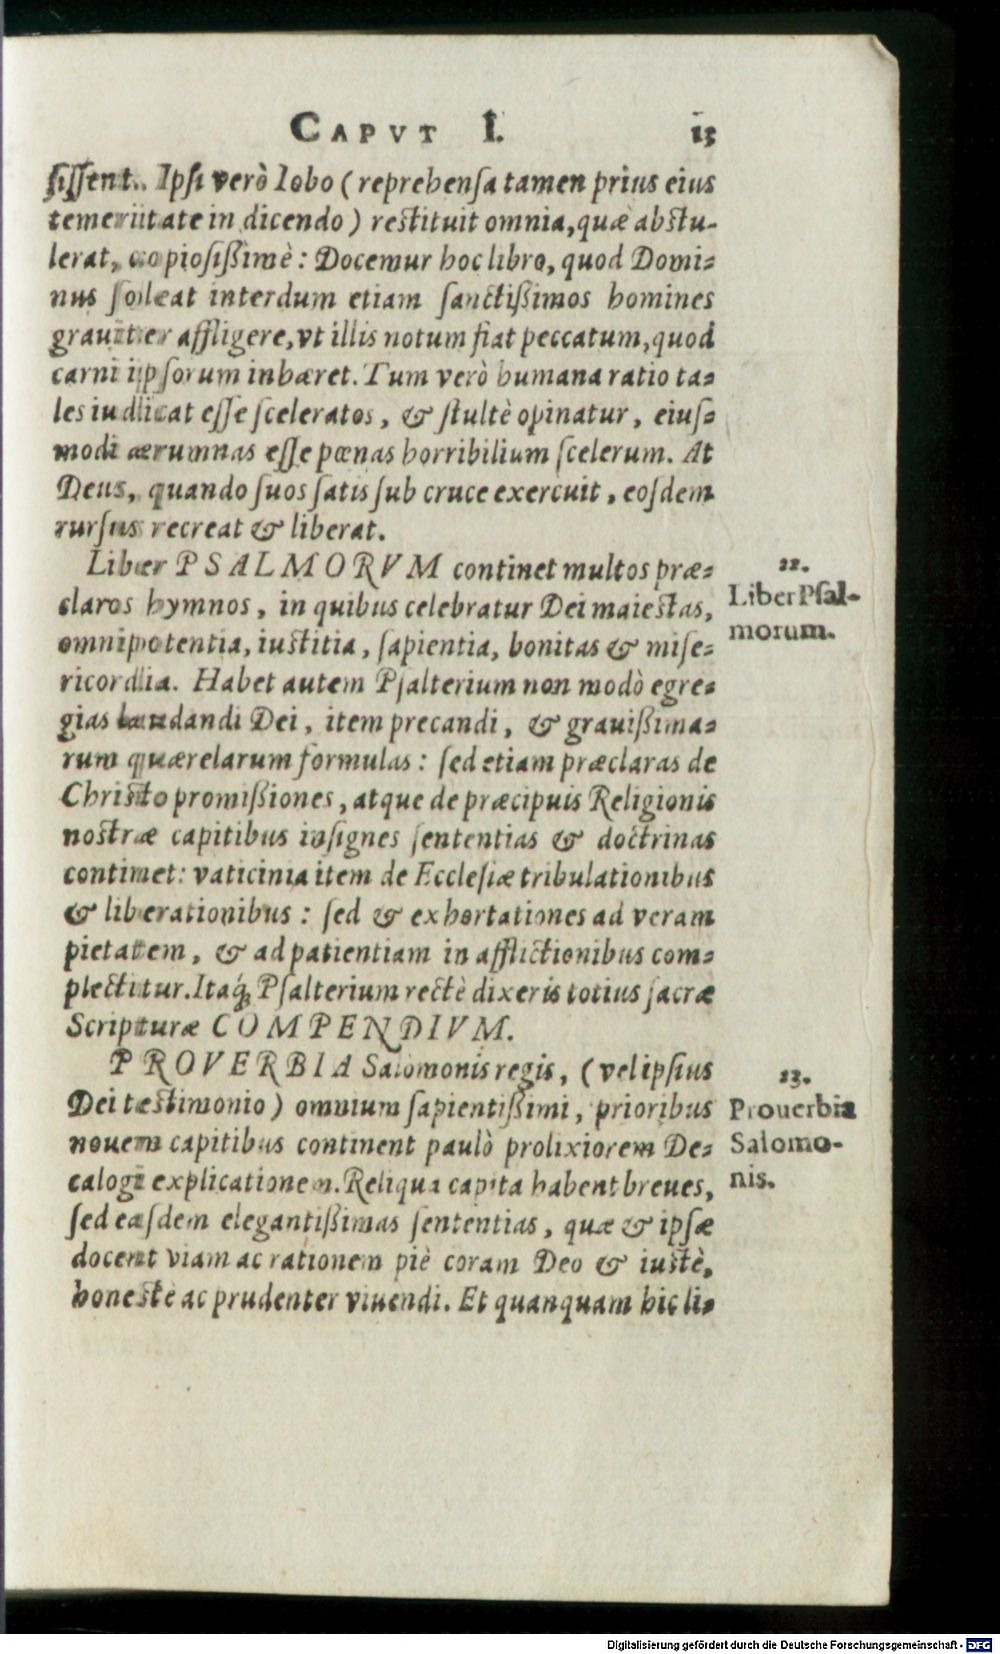 CAPVT I. 13
ſiſſent. Ipſi verò Iobo (reprehenſa tamen prius eius
temeritate in dicendo) reſtituit omnia, quæ abſtu-
lerat, copioſiſſimè: Docemur hoc libro, quod Domi-
nus ſoleat interdum etiam ſanctiſſimos homines
grauiter affligere, vt illis notum fiat peccatum, quod
carni ipſorum inhæret. Tum verò humana ratio ta-
les iudicat eſſe ſceleratos, & ſtultè opinatur, eiuſ-
modi ærumnas eſſe pœnas horribilium ſcelerum. At
Deus, quando ſuos ſatis ſub cruce exercuit, eoſdem
rurſus recreat & liberat.
Liber PSALMORVM continet multos præ-
claros hymnos, in quibus celebratur Dei maieſtas,
omnipotentia, iuſtitia, ſapientia, bonitas & miſe-
ricordia. Habet autem Pſalterium non modò egre-
gias laudandi Dei, item precandi, & grauiſſima-
rum quærelarum formulas: ſed etiam præclaras de
Chriſto promiſſiones, atque de præcipuis Religionis
noſtræ capitibus inſignes ſententias & doctrinas
continet: vaticinia item de Eccleſiæ tribulationibus
& liberationibus: ſed & exhortationes ad veram
pietatem, & ad patientiam in afflictionibus com-
plectitur. Itaq́; Pſalterium rectè dixeris totius ſacræ
Scripturæ COMPENDIVM.
22.
Liber Pſal-
morum.
PROVERBIA Salomonis regis, (vel ipſius
Dei teſtimonio) omnium ſapientiſſimi, prioribus
nouem capitibus continent paulò prolixiorem De-
calogi explicationem. Reliqua capita habent breues,
ſed eaſdem elegantiſſimas ſententias, quæ & ipſæ
docent viam ac rationem piè coram Deo & iuſtè,
honeſtè ac prudenter viuendi. Et quanquam hic li-
23.
Prouerbia
Salomo-
nis.
Digitalisierung gefördert durch die Deutsche Forschungsgemeinschaft - DFG